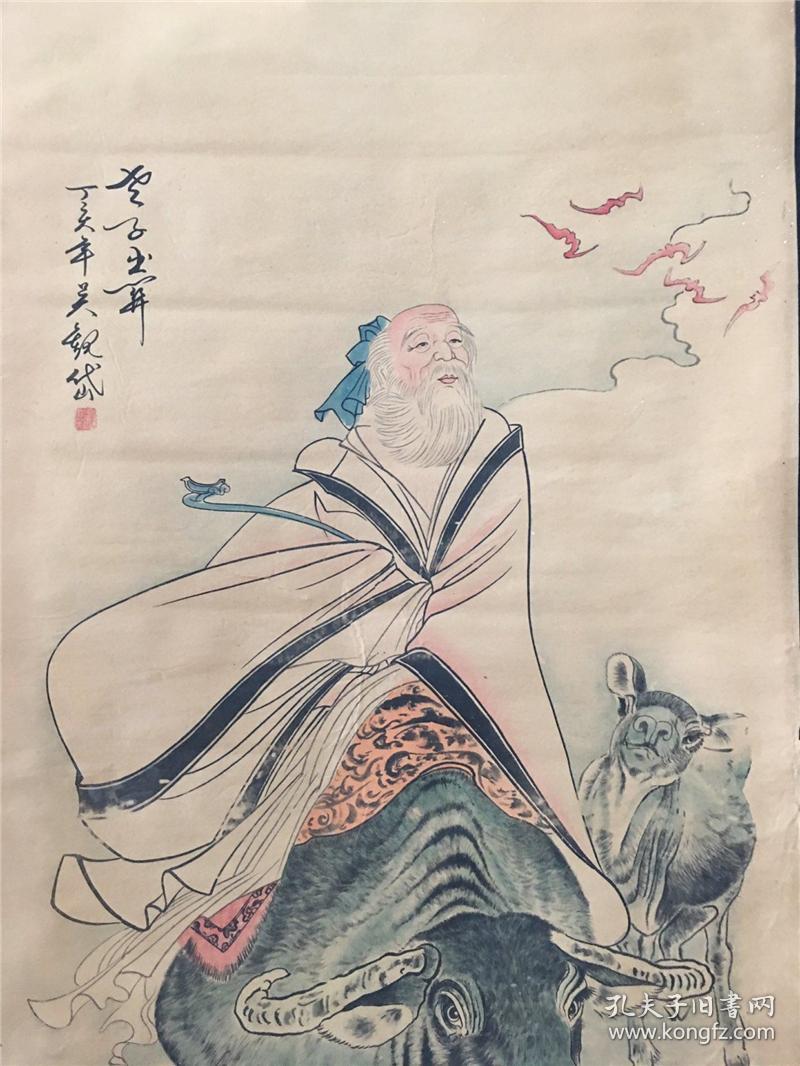 老子出關
丁亥年吴觀岱
孔夫子旧書网
www.kongfz.com